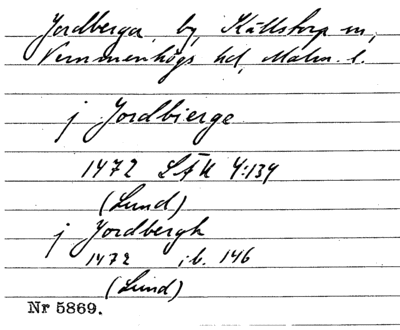 Jordberga, by, Källstorp sn,
Vemmenhögs hd, Malm. l.
j Jordbierge
1472 LÄU 4:134
(Lund)
j Jordbergh
1472 ib. 146
(Lund)
Nr 5869.